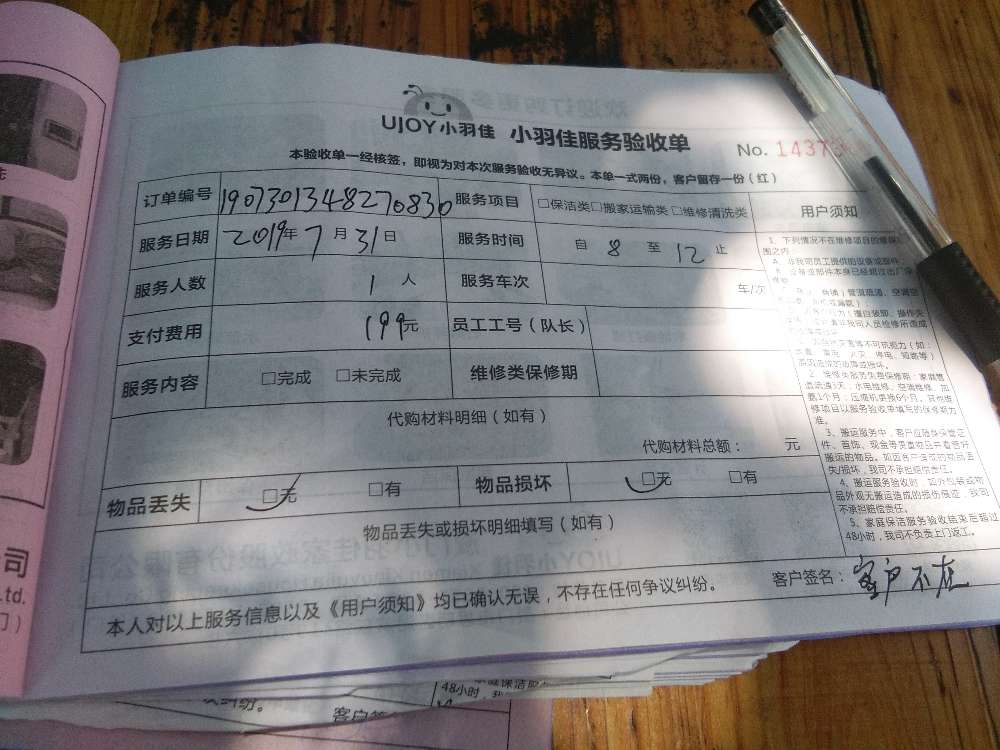 UJOY小羽佳 小羽佳服务验收单
No. 1437
本验收单一经核签，即视为对本次服务验收无异议。本单一式两份，客户留存一份（红）
订单编号 1907301348270830 服务项目 □保洁类□搬家运输类□维修清洗类 用户须知
服务日期 2019年7月31日 服务时间 自 8 至 12 止
服务人数 1 人 服务车次 车/次
支付费用 199元 员工工号（队长）
服务内容 □完成 □未完成 维修类保修期
代购材料明细（如有）
代购材料总额： 元
物品丢失 □无 □有 物品损坏 □无 □有
物品丢失或损坏明细填写（如有）
本人对以上服务信息以及《用户须知》均已确认无误，不存在任何争议纠纷。
客户签名：客户不在
1、下列情况不在维修项目的保
围之内
3、搬运服务中，客户应随身保管证
件、首饰、现金等贵重物品并看管好
搬运的物品。如因客户造成的物品丢
失/损坏，我司不承担赔偿责任。
4、搬运服务验收时，如外包装或物
品外观无搬运造成的损伤痕迹，我司
不承担赔偿责任。
5、家庭保洁服务验收结束后超过
48小时，我司不负责上门返工。
司
Ltd.
门）
48小时，我